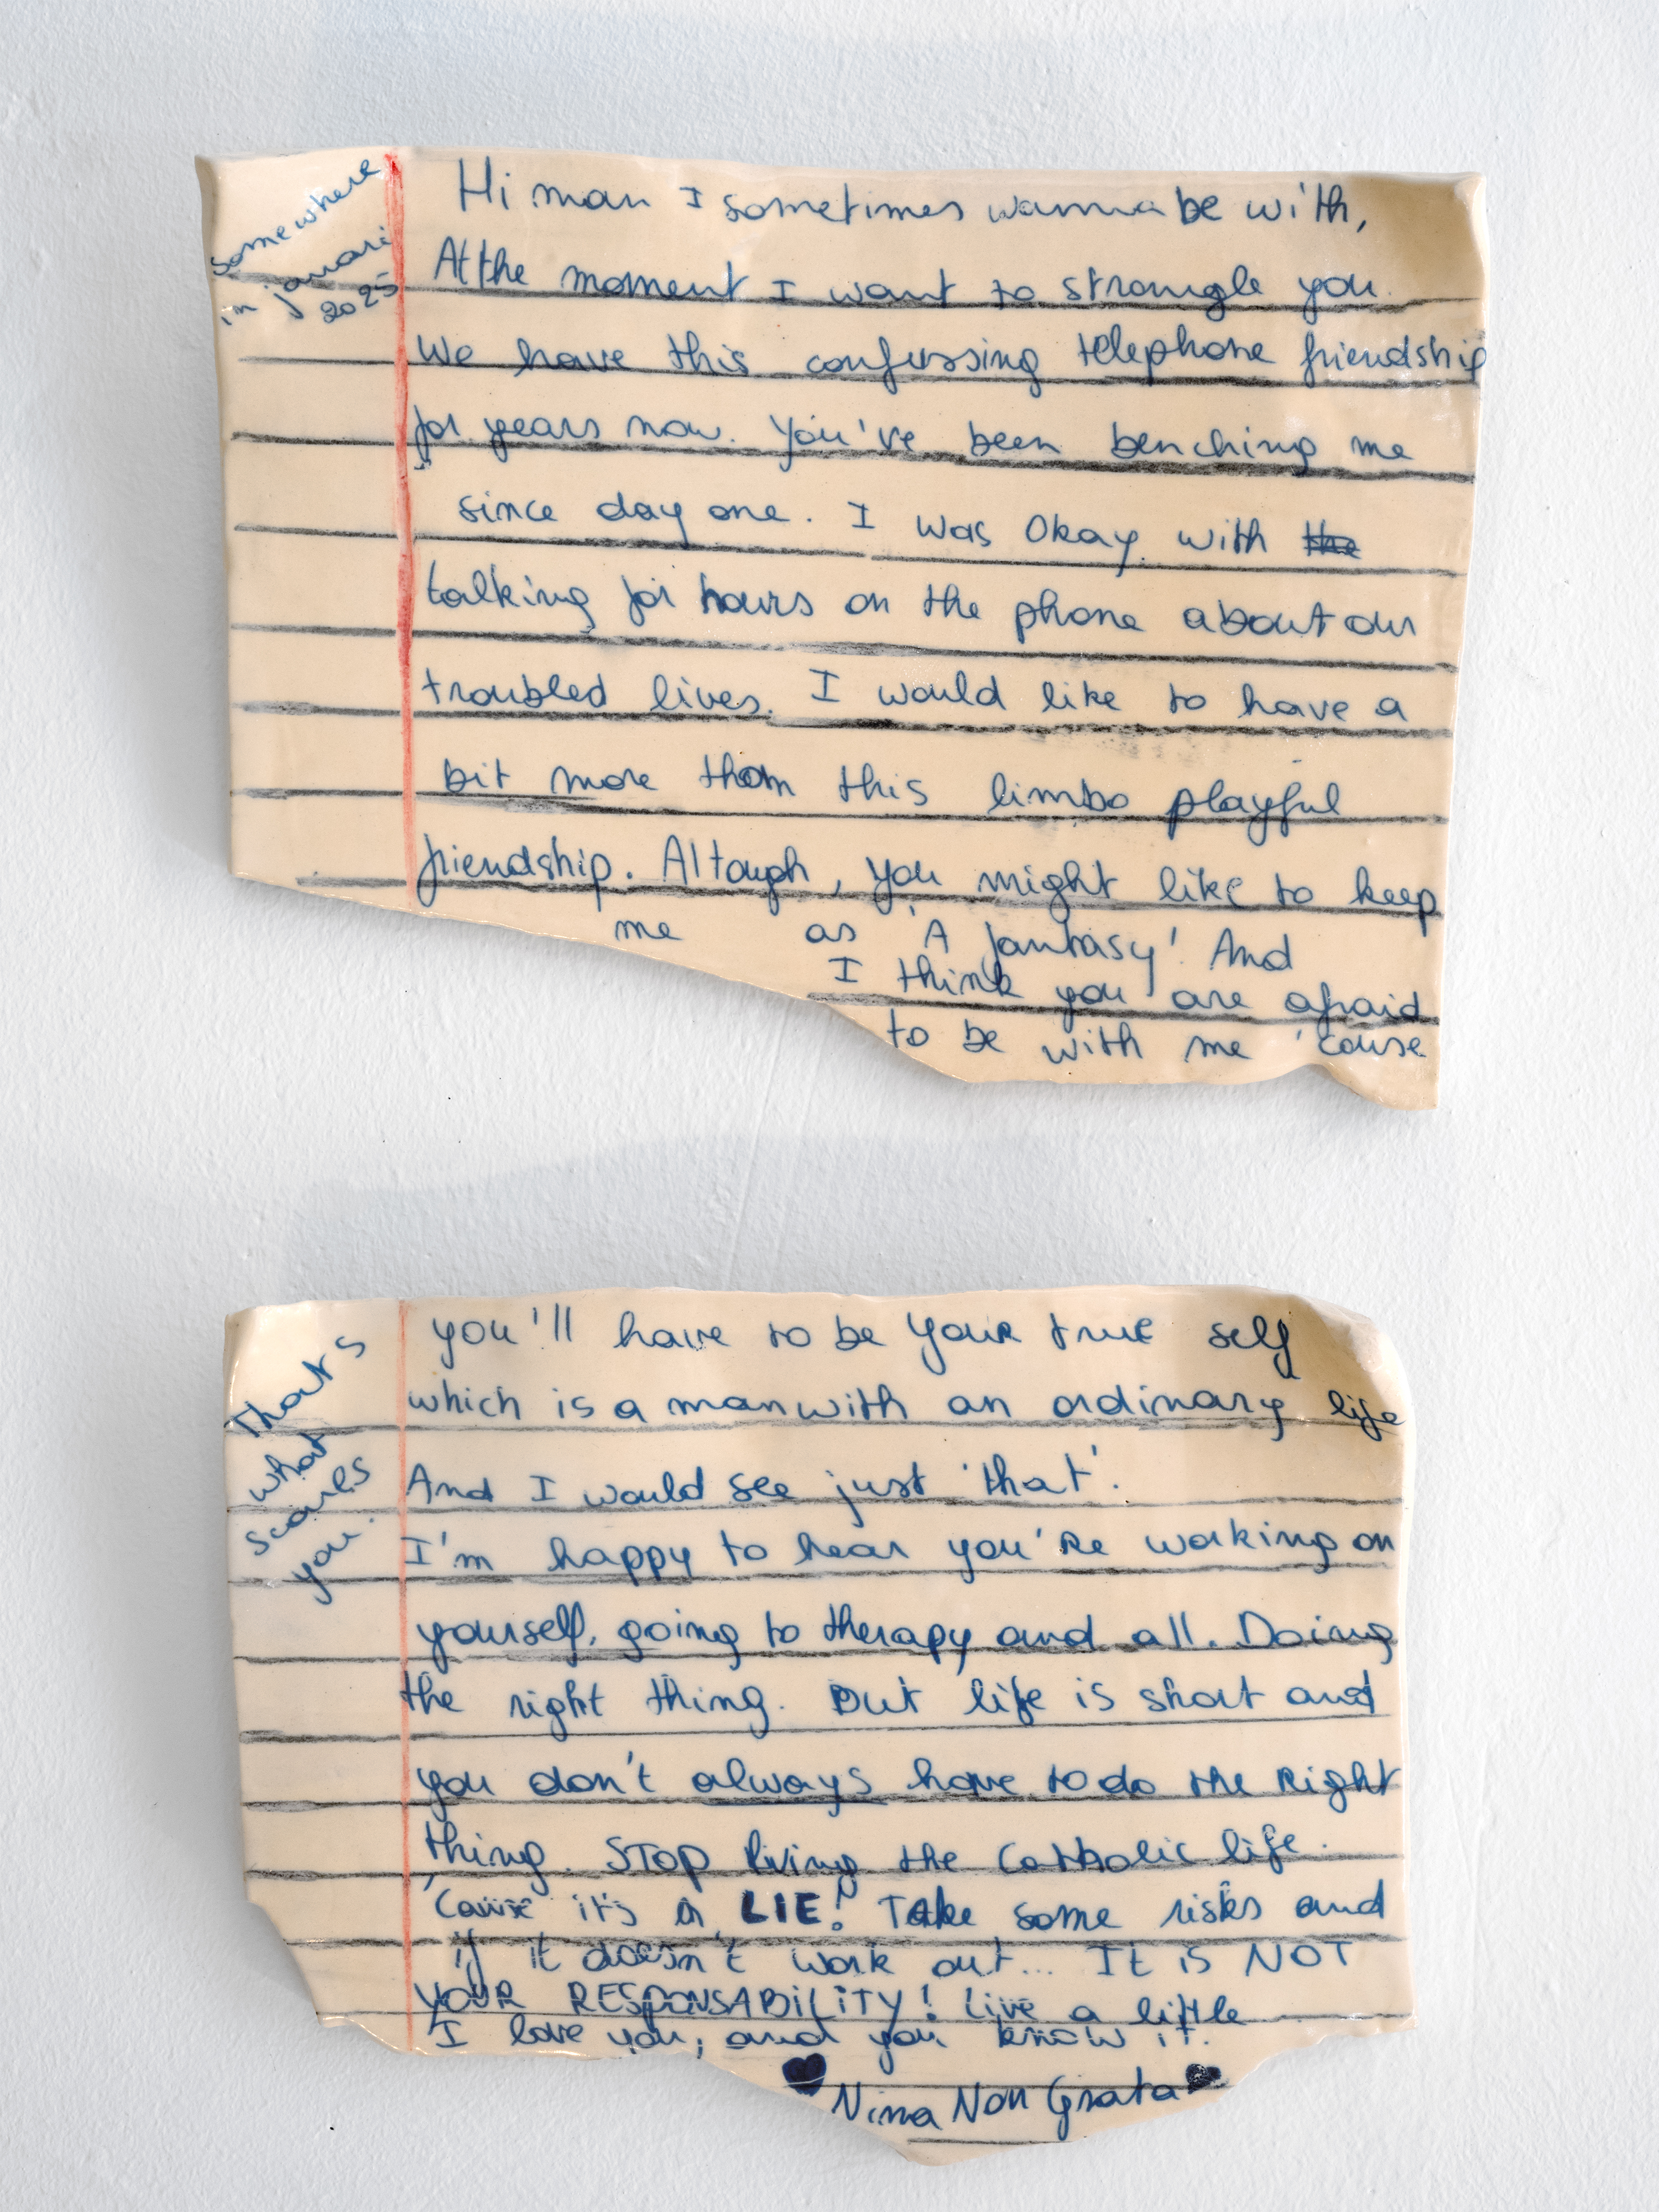 somewhere
in januari
2025
Hi man I sometimes wanna be with,
At the moment I want to strangle you.
We have this confussing telephone friendship
for years now. You've been benching me
since day one. I was Okay with the
talking for hours on the phone about our
troubled lives. I would like to have a
bit more than this limbo playful
friendship. Altough, you might like to keep
me as 'A fantasy'. And
I think you are afraid
to be with me 'cause
Thats
what
scares
you.
you'll have to be your true self
which is a man with an ordinary life
And I would see just 'that'.
I'm happy to hear you're working on
yourself, going to therapy and all. Doing
the right thing. But life is short and
you don't always have to do the Right
thing. STOP living the Catholic life.
'Cause it's a LIE! Take some risks and
if it doesn't work out... It is NOT
YOUR RESPONSABILITY! Live a little
I love you, and you know it.
Nina Non Grata